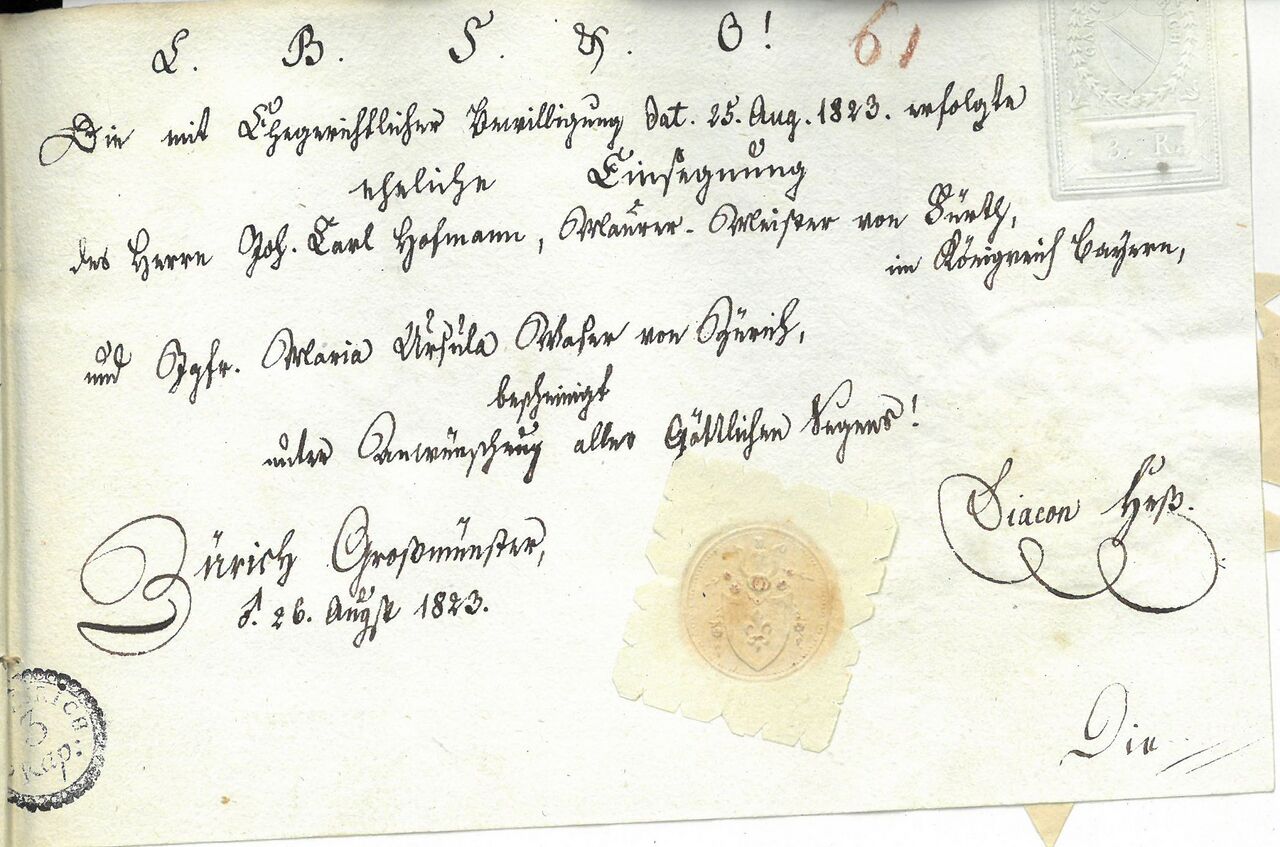 L. B. S. &. G! 61
Die mit Ehegerichtlicher Bewilligung dat. 25. Aug. 1823. erfolgte
eheliche Einsegnung
des Herrn Joh. Carl Hofmann, Maurer-Meister von Fürth,
im Königreich Bayern,
und Jgfr. Maria Ursula Waser von Zürich,
bescheinigt
unter Anwünschung alles Göttlichen Segens!
Diacon Heß.
Zürich Großmünster,
d. 26. Augst 1823.
Die
CANTON
3. R.
3
Kap: